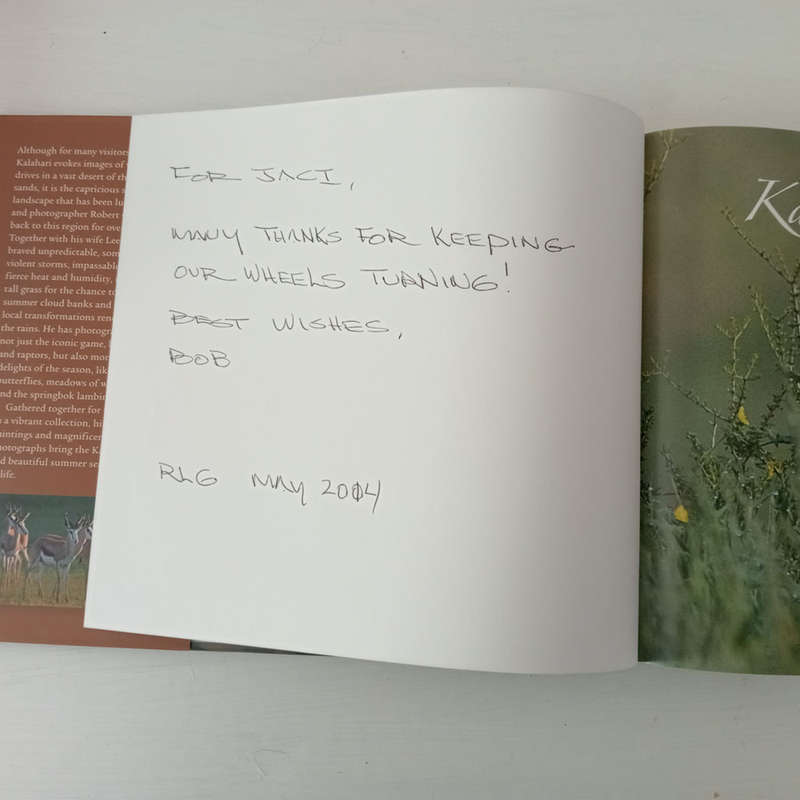 Although for many visitors
Kalahari evokes images of
drives in a vast desert of
sands, it is the capricious
landscape that has been
and photographer Robert
back to this region for over
Together with his wife Lee
braved unpredictable,
violent storms, impassable
fierce heat and humidity,
tall grass for the chance to
summer cloud banks and
local transformations
the rains. He has
not just the iconic game,
and raptors, but also
delights of the season,
butterflies, meadows of
and the springbok
Gathered together for
a vibrant collection,
and
photographs bring the
beautiful summer
life.
FOR JACI,
MANY THANKS FOR KEEPING
OUR WHEELS TURNING!
BEST WISHES,
BOB
RLG MAY 2004